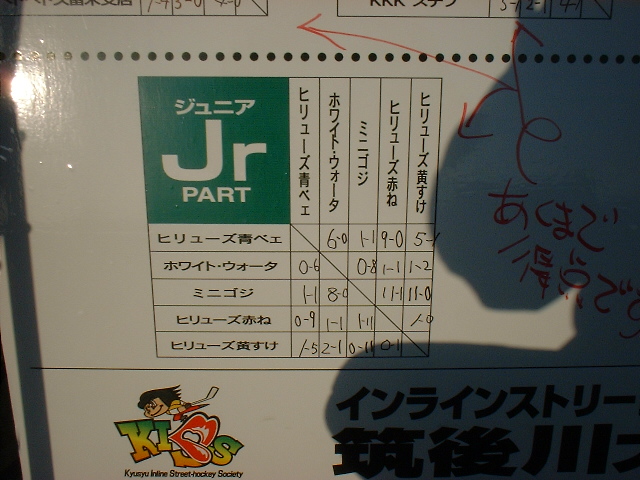 KKK ステン 5-1 2-1 4-1
ジュニア
Jr
PART
ヒリューズ青ベェ
ホワイト・ウォータ
ミニゴジ
ヒリューズ赤ね
ヒリューズ黄すけ
ヒリューズ青ベェ 6-0 1-1 9-0 5-1
ホワイト・ウォータ 0-6 0-8 1-1 1-2
ミニゴジ 1-1 8-0 11-1 11-0
ヒリューズ赤ね 0-9 1-1 1-11 1-0
ヒリューズ黄すけ 1-5 2-1 0-11 0-1
あくまで
得点で
KIDS
Kyusyu Inline Street-hockey Society
インラインストリー
筑後川